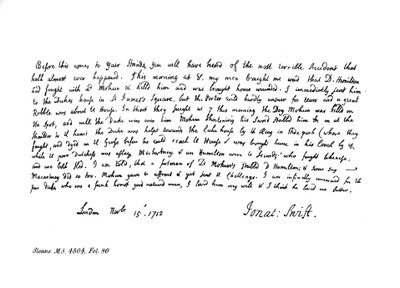 Before this comes to your Hands, you will have heard of the most terrible Accident that
hath almost ever happened. This morning at 8, my man brought me word that D. Hamilton
had fought with Ld Mohun & killed him and was brought home wounded. I immediately sent him
to the Dukes house in St James's Square, but the Porter could hardly answer for tears and a great
Rabble was about the House. In short they fought at 7 this morning the Dog Mohun was killed on
the spot, and while the Duke was over him Mohun shortening his Sword stabbd him in at the
Shoulder to the heart the Duke was helpd towards the Cake house by the Ring in Hide park (where they
fought, and dyed on the Grass before he could reach the House & was brought home in his Coach by 8,
while the poor Dutchess was asleep. Mackartney & one Hamilton were the Seconds who fought likewise,
and are both fled. I am told, that a footman of Ld Mohun's stabbd D. Hamilton; & some say
Maccartney did so too. Mohun gave the affront & yet sent the Challenge. I am infinitely concerned for the
poor Duke who was a frank honest good natured man, I loved him very well & I think he loved me better.
London Novbr 15th 1712
Jonat: Swift.
Sloane M.S. 4804, Fol. 80